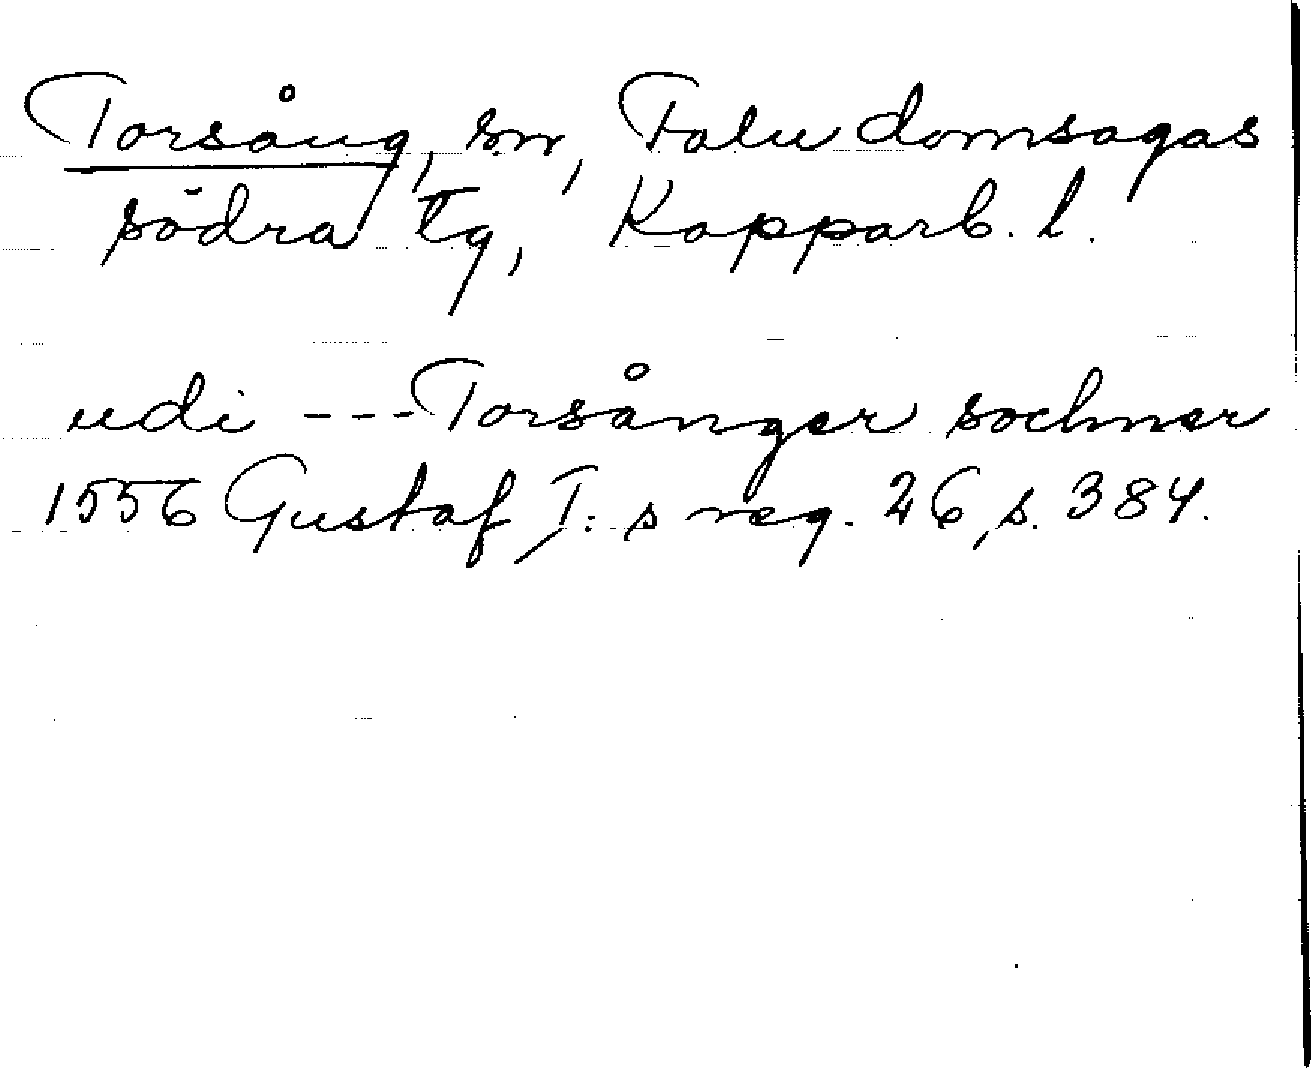 Torsång, sn, Falu domsagas
södra tg, Kopparb. l.
udi --- Torsånger sochner
1556 Gustaf I: s reg. 26, s. 384.